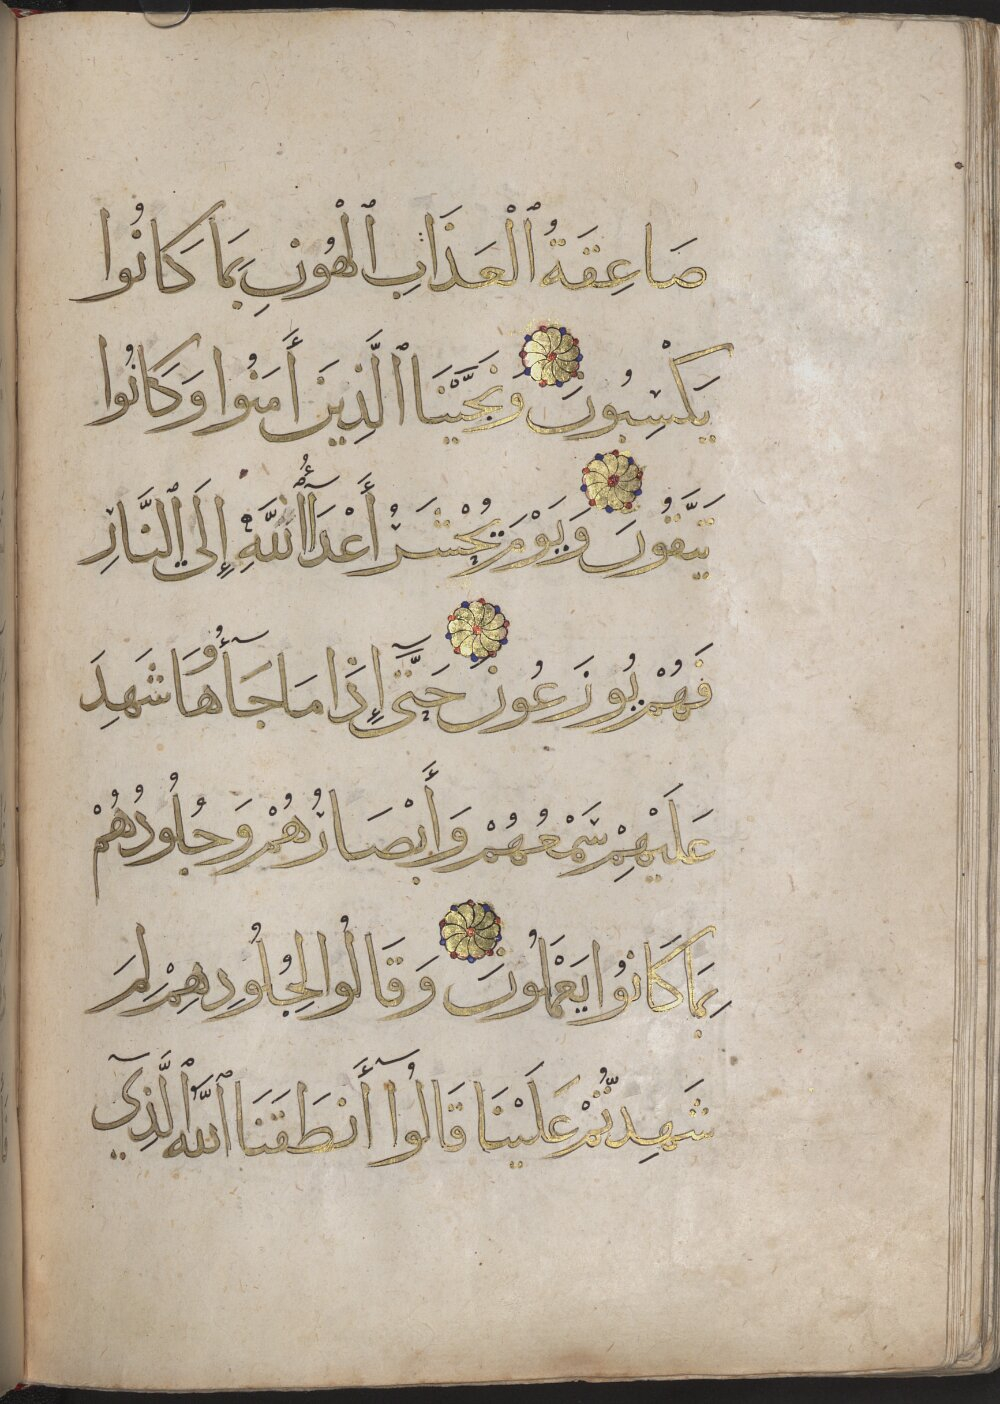 صَاعِقَةُ ٱلْعَذَابِ ٱلْهُونِ بِمَا كَانُوا
يَكْسِبُونَ وَنَجَّيْنَا ٱلَّذِينَ أَمَنُوا وَكَانُوا
يَتَّقُونَ وَيَوْمَ يُحْشَرُ أَعْدَآءُ ٱللَّهِ إِلَى ٱلنَّارِ
فَهُمْ يُوزَعُونَ حَتَّىٰٓ إِذَا مَا جَآءُوهَا شَهِدَ
عَلَيْهِمْ سَمْعُهُمْ وَأَبْصَارُهُمْ وَجُلُودُهُمْ
بِمَا كَانُوا يَعْمَلُونَ وَقَالُوا لِجُلُودِهِمْ لِمَ
شَهِدتُّمْ عَلَيْنَا قَالُوٓا أَنطَقَنَا ٱللَّهُ ٱلَّذِيٓ